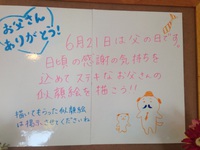 お父さん
ありがとう!
6月21日は父の日です。
日頃の感謝の気持ちを
込めてステキなお父さんの
似顔絵を描こう!!
描いてもらった似顔絵
は掲示させてくださいね